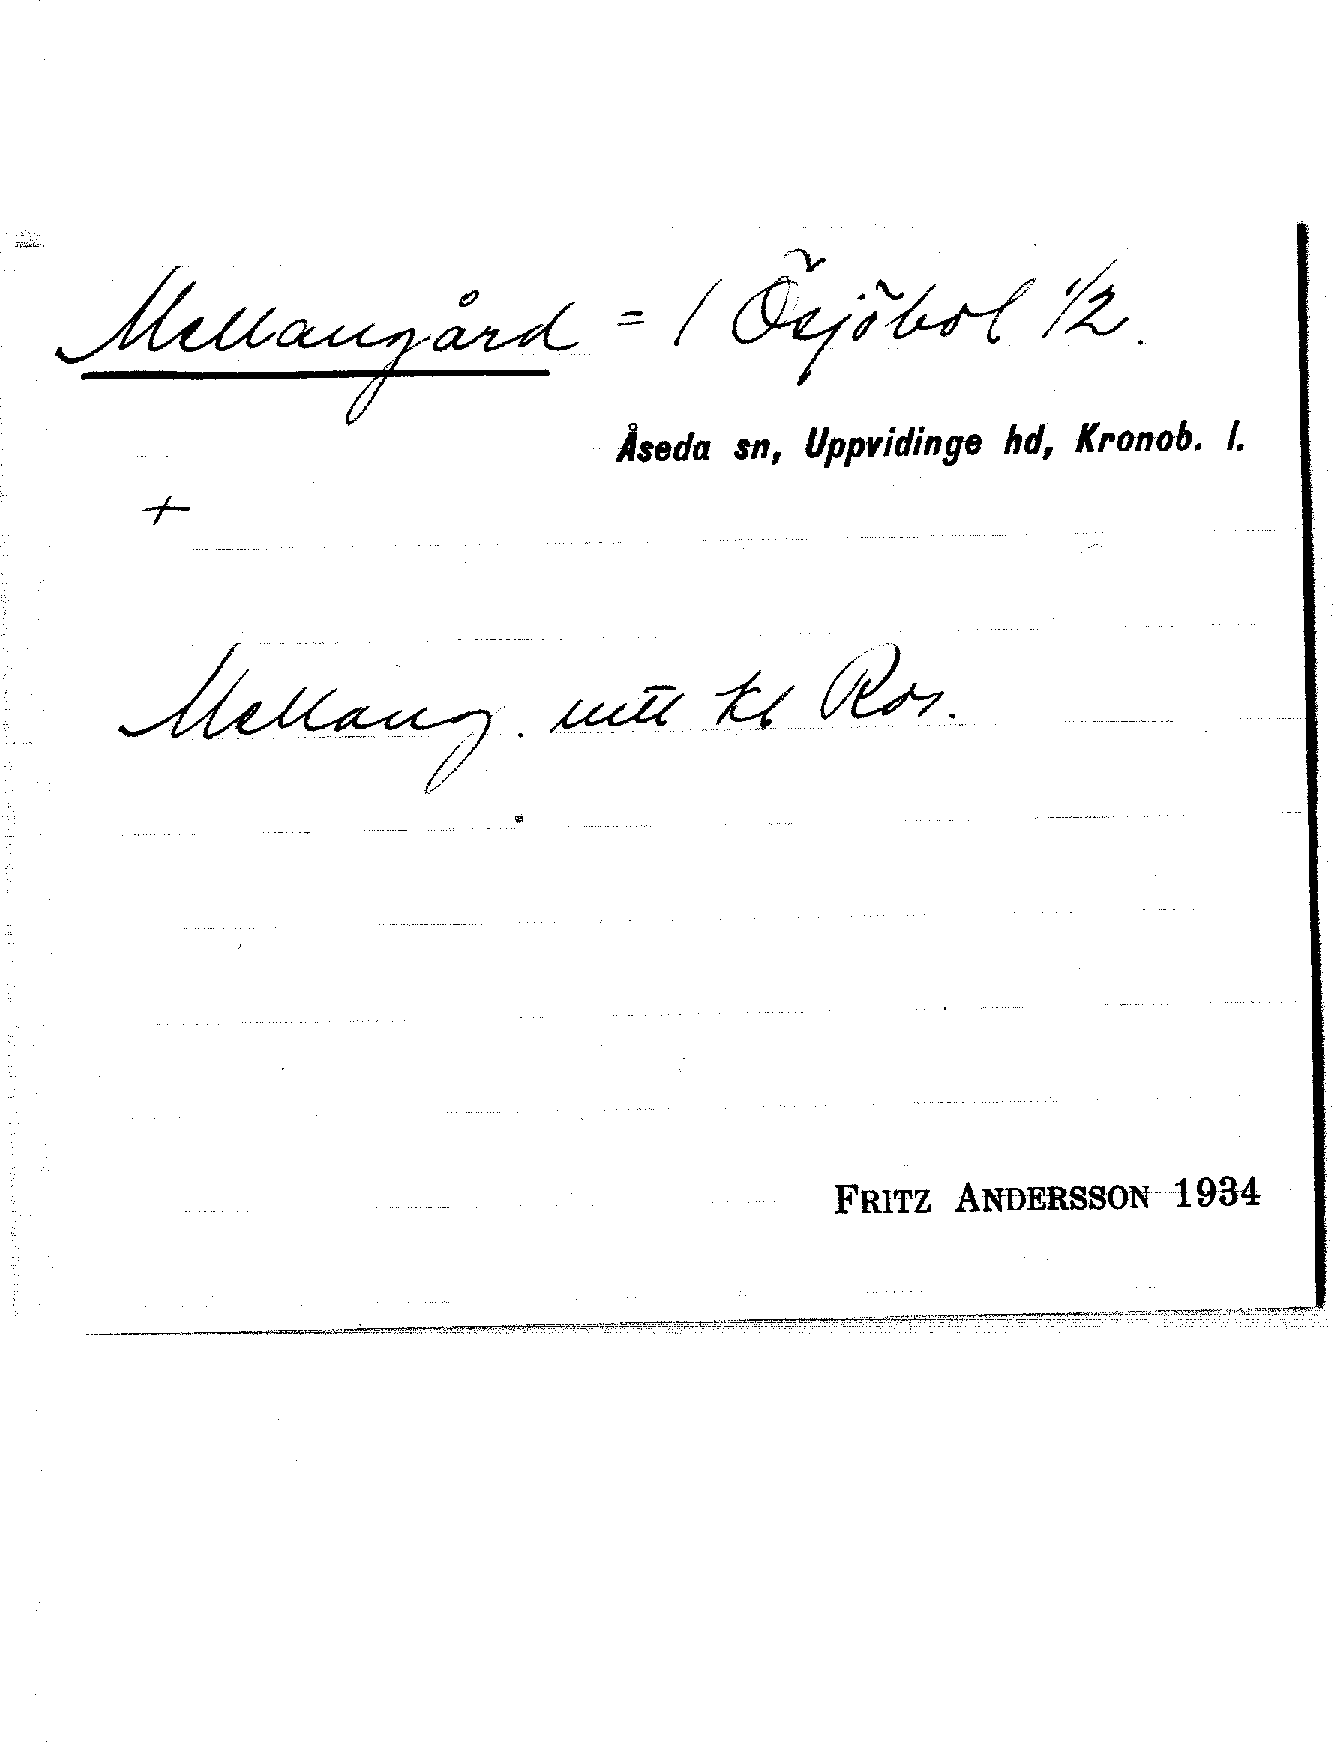 Mellangård = / Ösjöbol 1/2.
Åseda sn, Uppvidinge hd, Kronob. l.
+
Mellang. utt kl Ros.
FRITZ ANDERSSON 1934